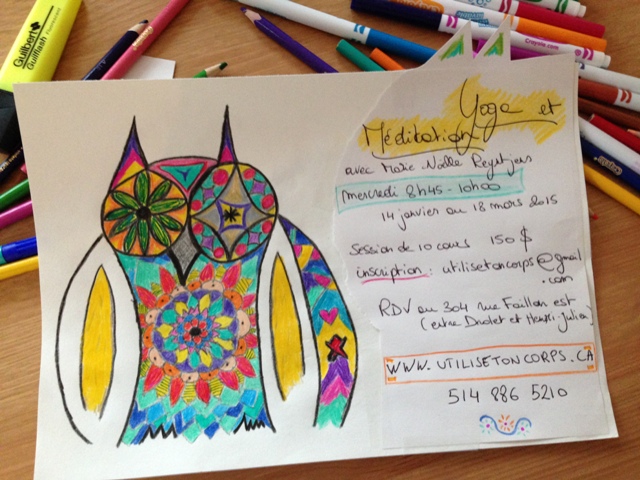 Guilbert
Guilflash
Yoga et
Méditation
avec Marie-Noëlle
mercredi 8h45-10h00
14 janvier au 18 mars 2015
Session de 10 cours 150 $
inscription : utilisetoncorps@gmail
.com
RDV au 304 rue Faillon est
(entre Drolet et Henri-Julien)
WWW.UTILISETONCORPS.CA
514 886 5210
Crayola